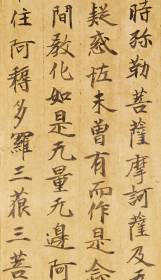 時弥勒菩薩摩訶薩及
疑惑恠未曽有而作是念
間教化如是无量无邊阿
住阿耨多羅三藐三菩